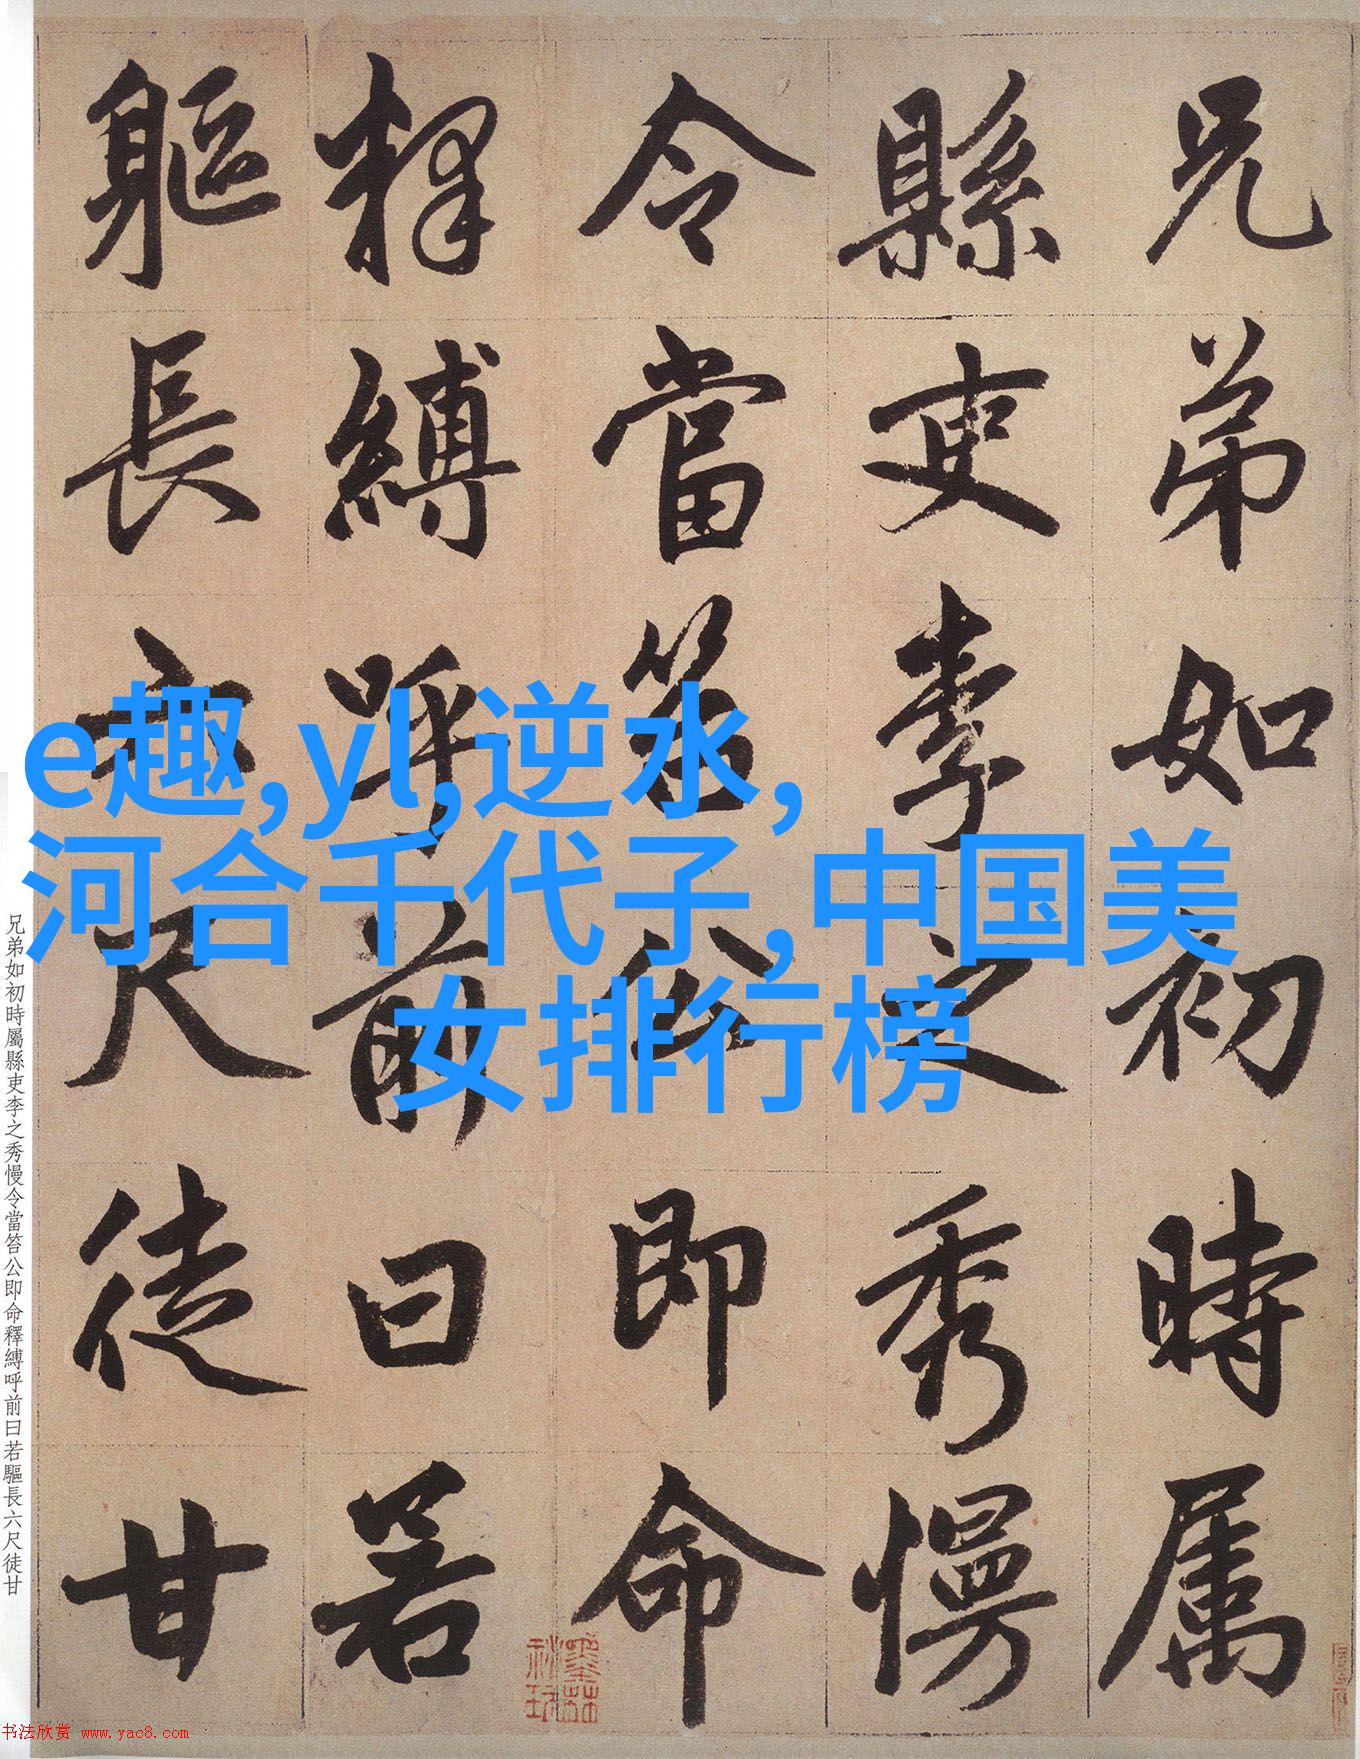 兄弟如初時属
縣吏李之秀慢
令當笞公即命
釋縛呼前曰若
軀長六尺徒甘
e趣,yl,逆水,
河合千代子,中国美
女排行榜
兄弟如初時屬縣吏李之秀慢令當笞公即命釋縛呼前曰若驅長六尺徒甘
书法欣赏 www.yac8.com